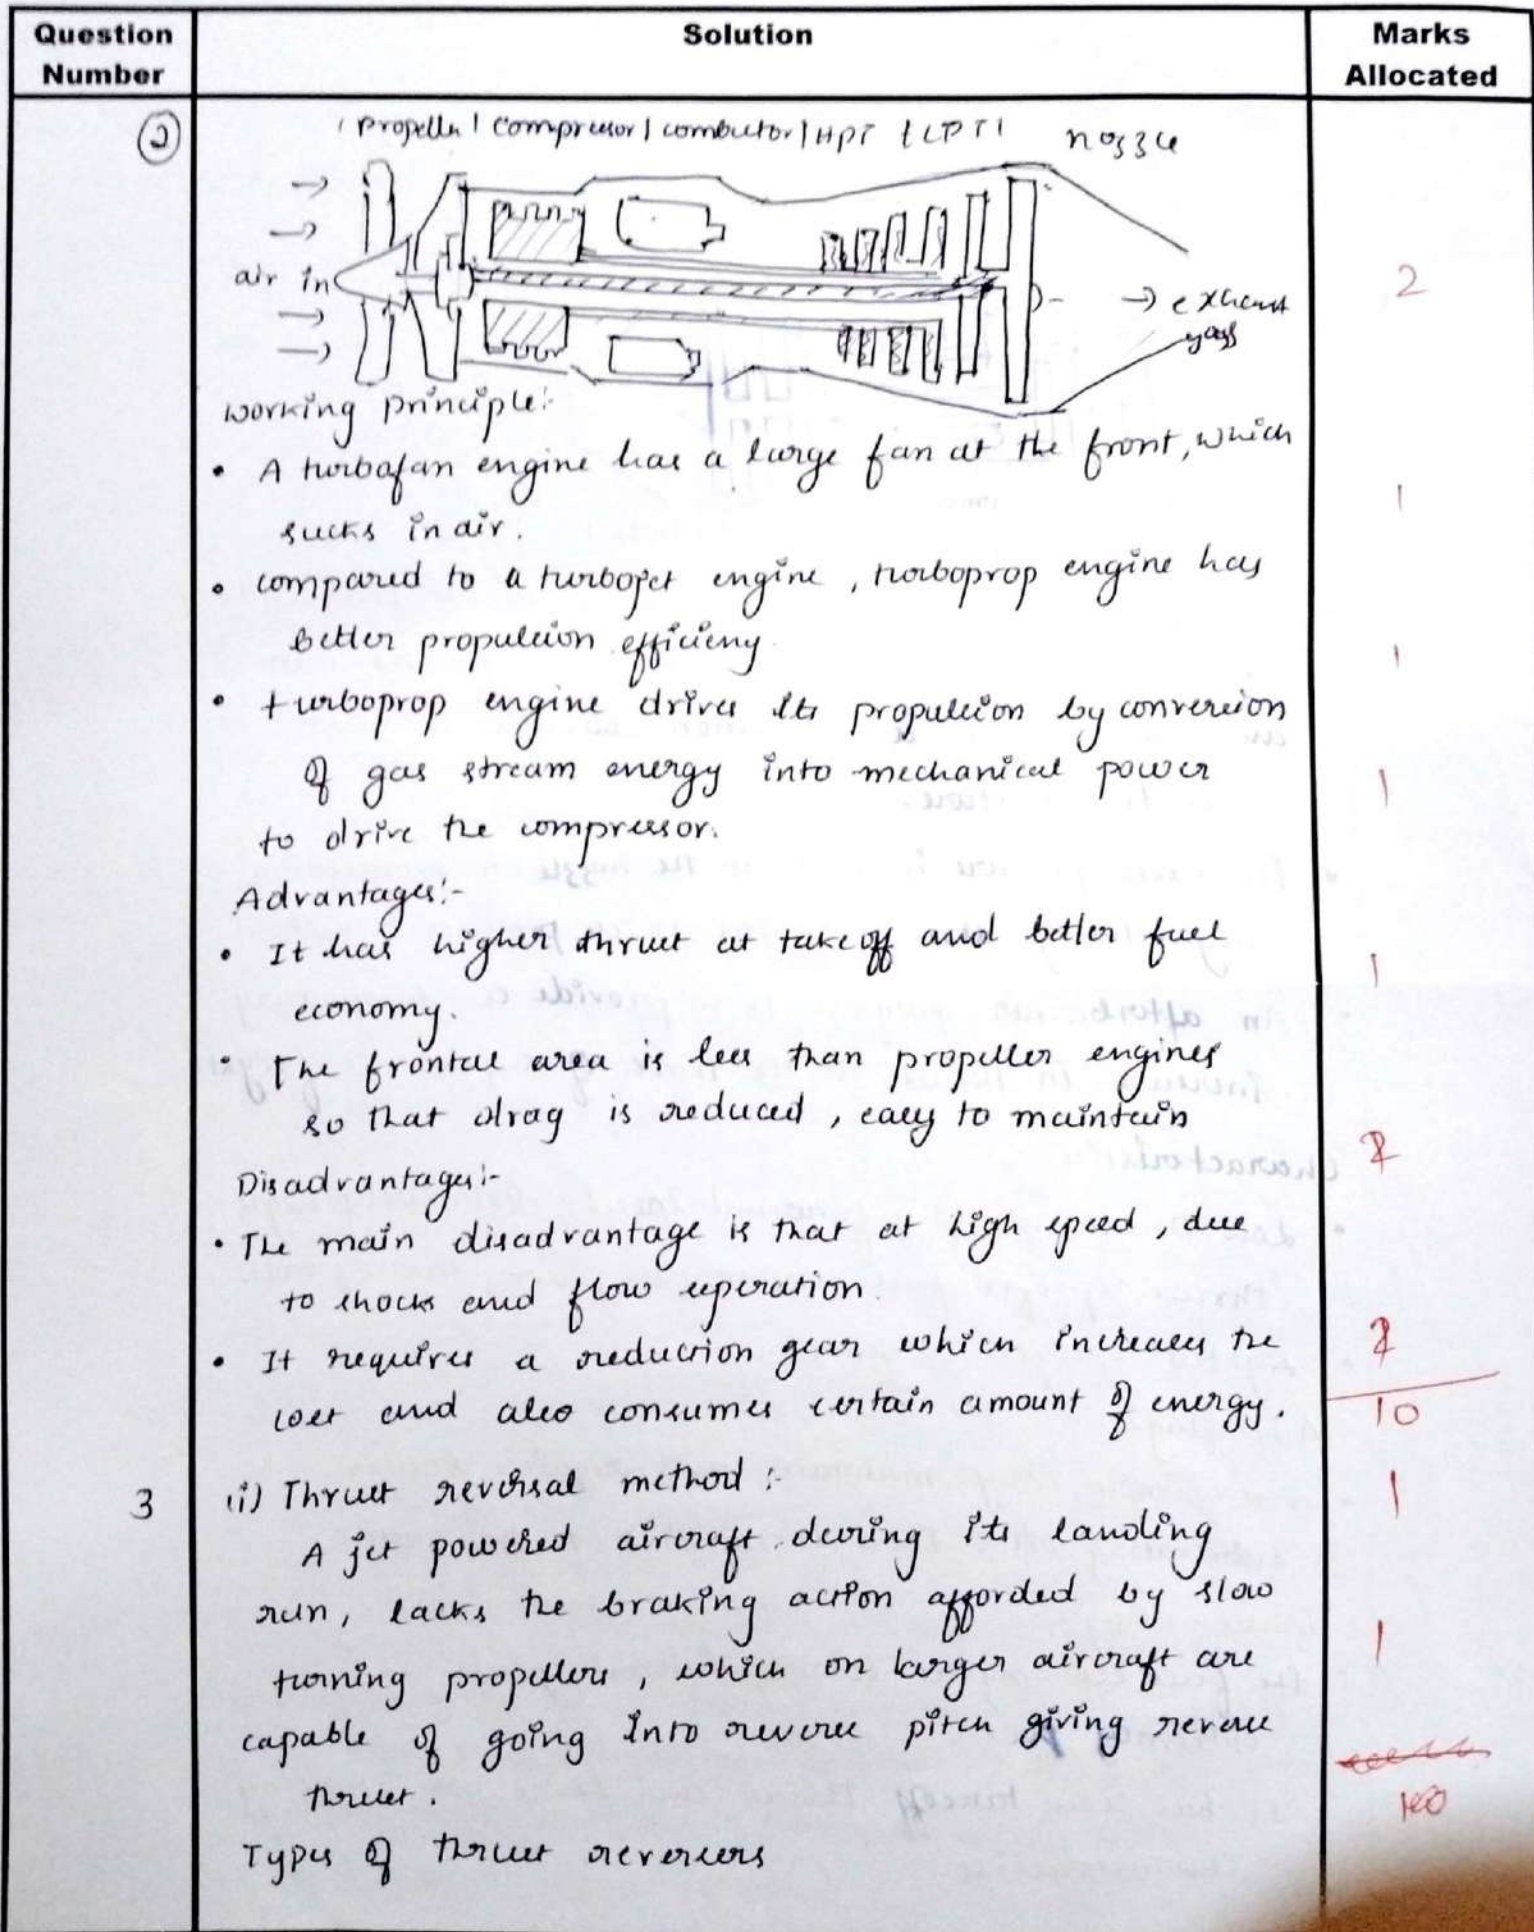 Question Number
Solution
Marks Allocated
2
propeller | compressor | combustor | HPT | LPT | nozzle
air in
→ exhaust
gas
2
working principle:-
• A turbofan engine has a large fan at the front, which
sucks in air.
1
• compared to a turbojet engine, turboprop engine has
better propulsion efficieny
1
• turboprop engine drives its propulsion by conversion
of gas stream energy into mechanical power
1
to drive the compressor.
Advantages:-
• It has higher thrust at takeoff and better fuel
1
economy.
• The frontal area is less than propeller engines
so that drag is reduced, easy to maintain
2
Disadvantages:-
• The main disadvantage is that at high speed, due
to shocks and flow seperation.
• It requires a reduction gear which increases the
2
cost and also consumes certain amount of energy.
10
3
(i) Thrust reversal method :-
1
A jet powered aircraft during its landing
run, lacks the braking action afforded by slow
1
turning propellers, which on larger aircraft are
capable of going into reverse pitch giving reverse
thrust.
Types of thrust reversers